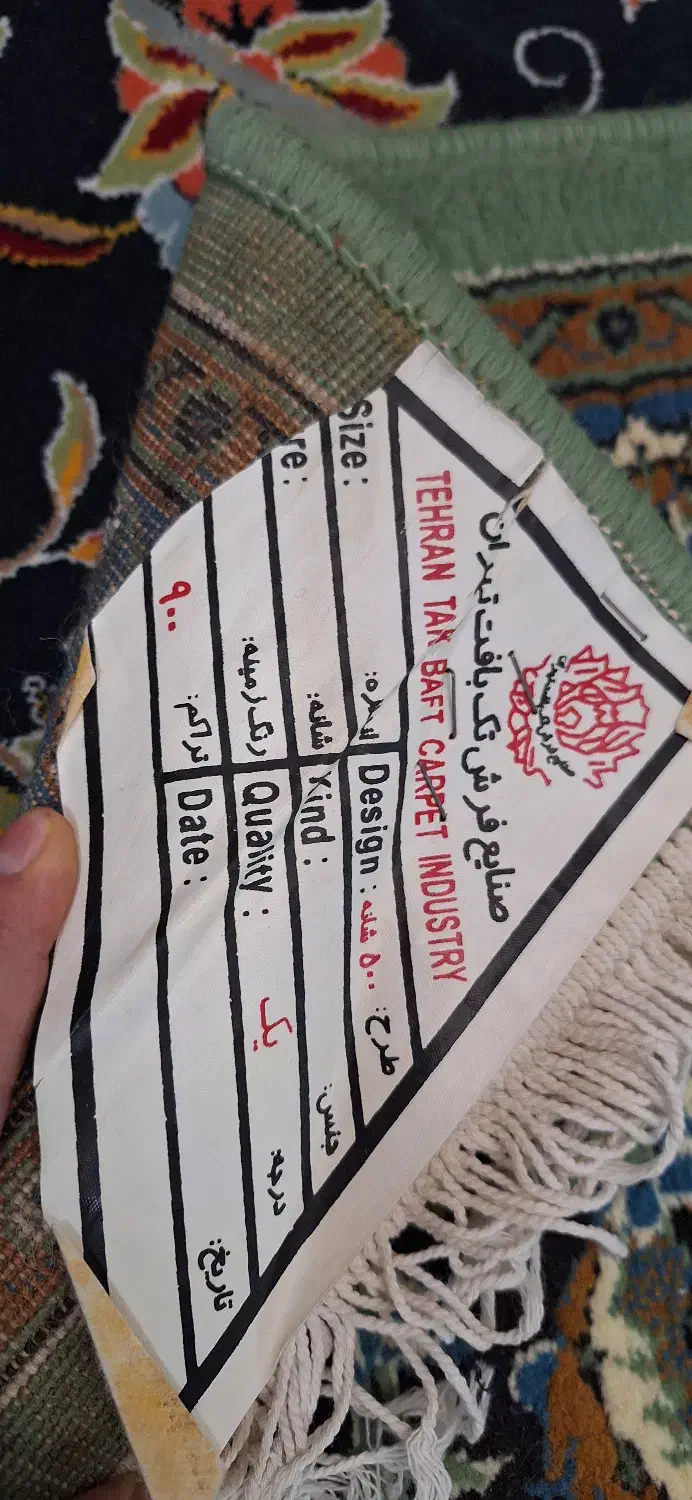 صنایع فرش تک بافت تهران
TEHRAN TAK BAFT CARPET INDUSTRY
Size: اندازه: Design: ۵۰۰ شانه طرح:
re: شانه: Kind: جنس:
رنگ زمینه: Quality: یک درجه:
۹۰۰ تراکم: Date: تاریخ: